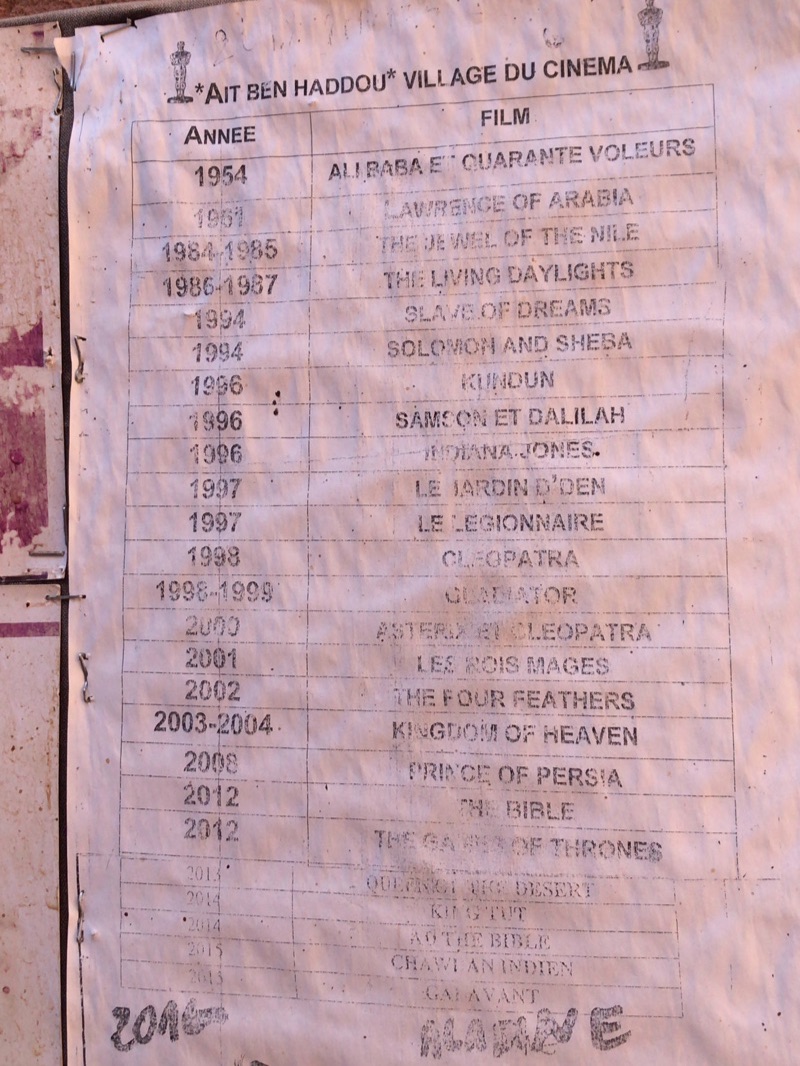 *AIT BEN HADDOU* VILLAGE DU CINEMA
ANNEE FILM
1954 ALI BABA ET QUARANTE VOLEURS
1961 LAWRENCE OF ARABIA
1984-1985 THE JEWEL OF THE NILE
1986-1987 THE LIVING DAYLIGHTS
1994 SLAVE OF DREAMS
1994 SOLOMON AND SHEBA
1996 KUNDUN
1996 SAMSON ET DALILAH
1996 INDIANA JONES
1997 LE JARDIN D'DEN
1997 LE LEGIONNAIRE
1998 CLEOPATRA
1998-1999 GLADIATOR
2000 ASTERIX ET CLEOPATRA
2001 LES ROIS MAGES
2002 THE FOUR FEATHERS
2003-2004 KINGDOM OF HEAVEN
2008 PRINCE OF PERSIA
2012 THE BIBLE
2012 THE GAMES OF THRONES
2013 QUEEN OF THE DESERT
2014 KING TUT
2014 AD THE BIBLE
2015 CHAWI AN INDIEN
2015 GALAVANT